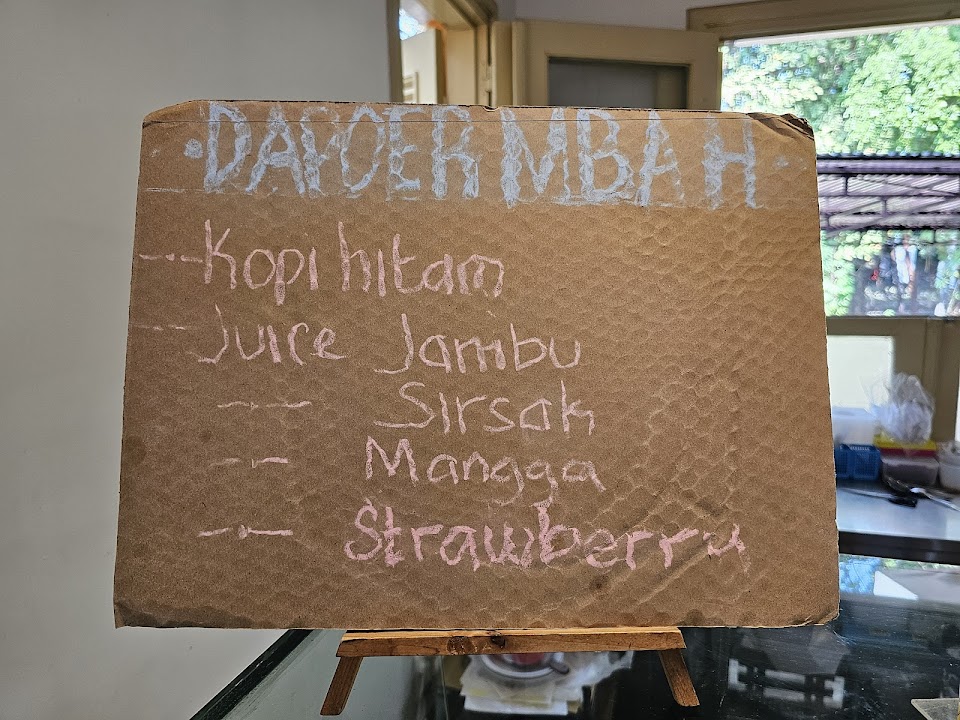 · DAPOER MBAH ·
--- Kopi hitam
--- Juice Jambu
-"- Sirsak
-"- Mangga
-"- Strawberry